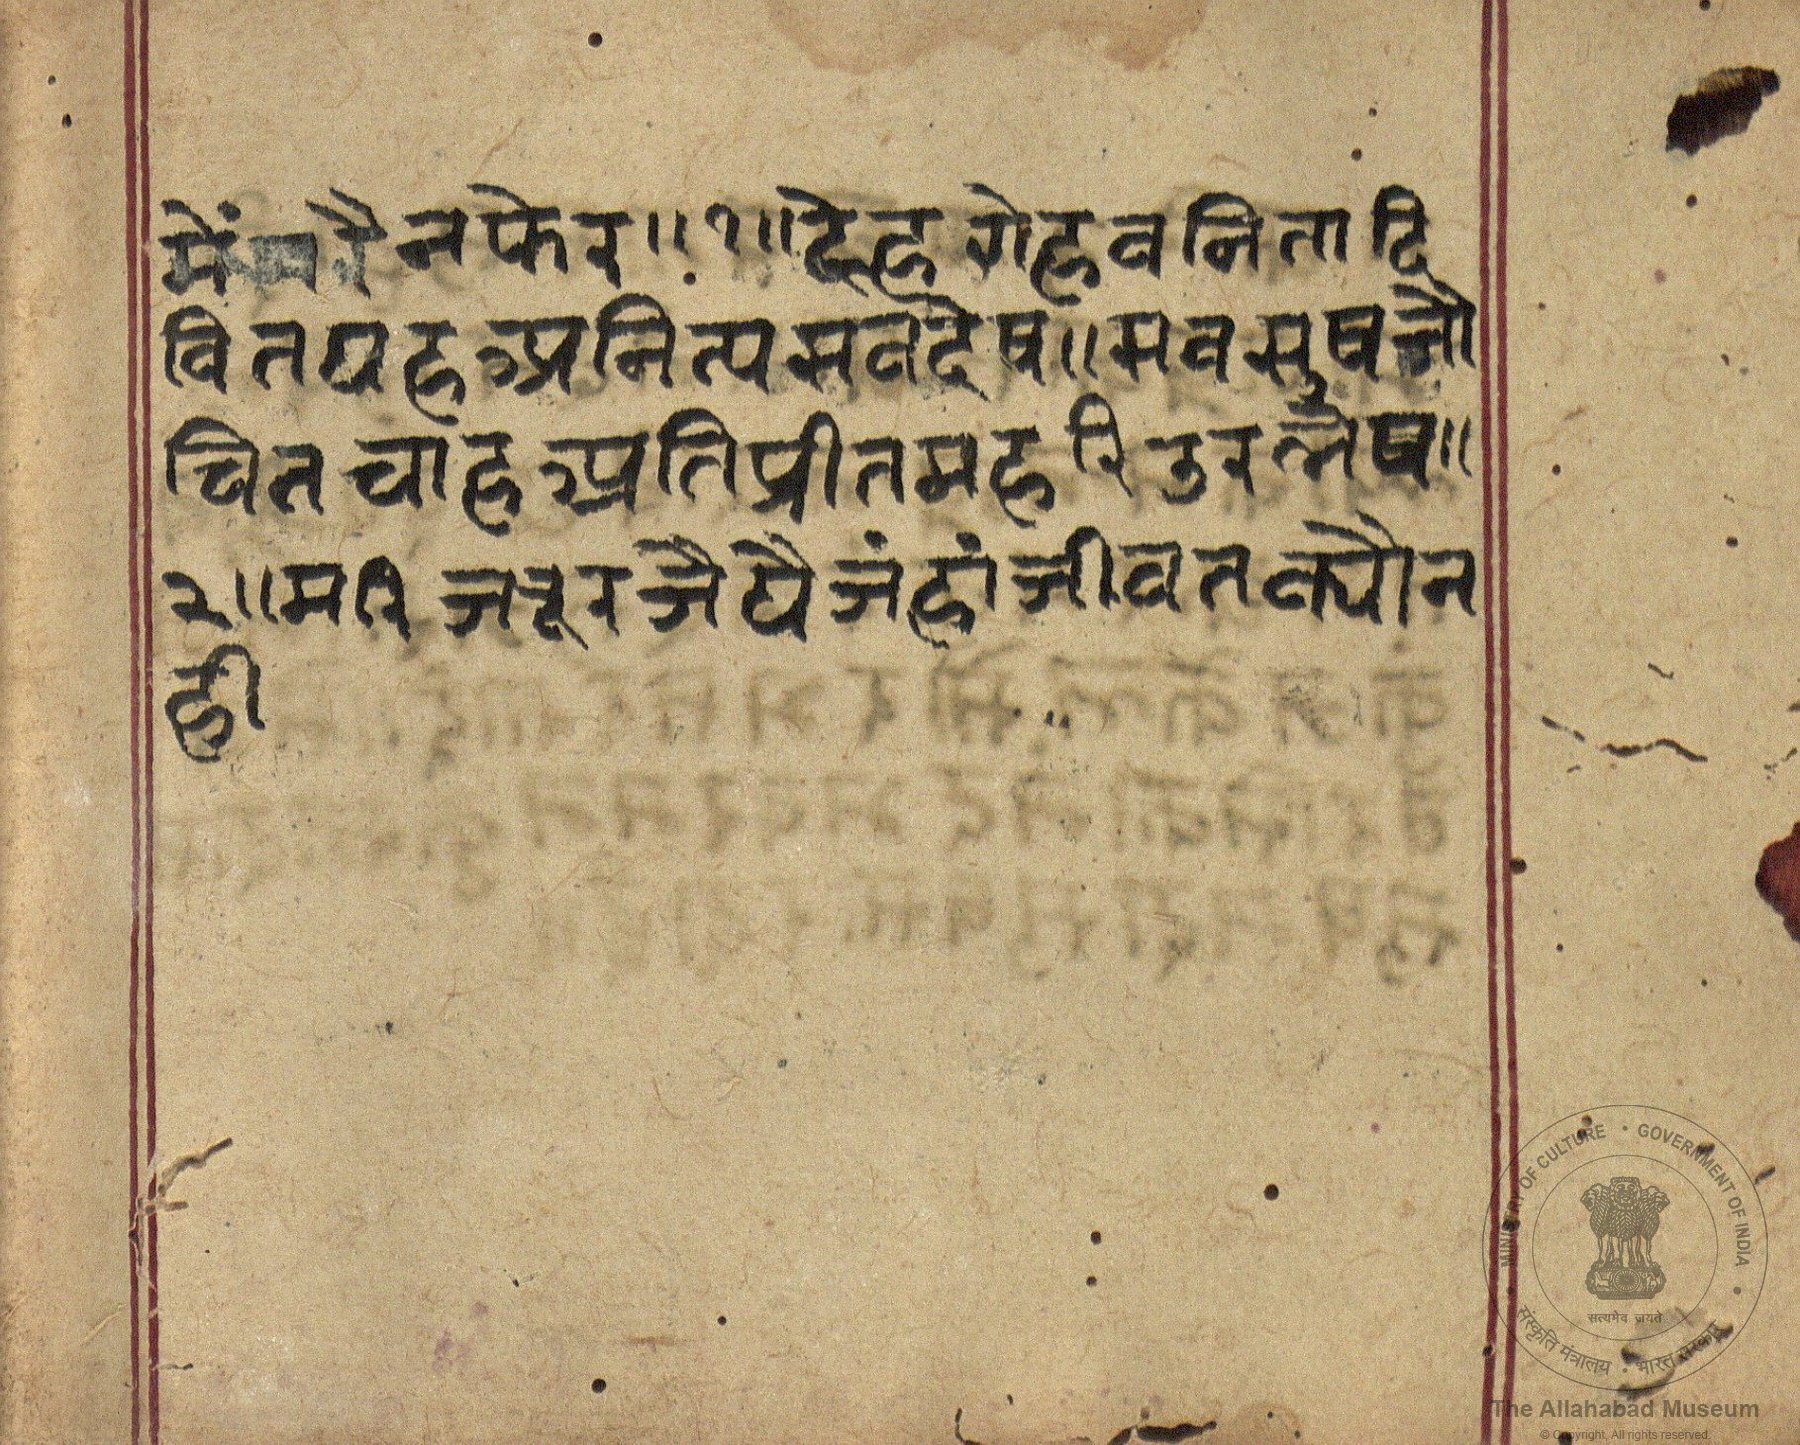 में परै न फेर॥१॥देह गेह वनितादि
वित यह अनित्य सव देष॥सव सुष जौ
चित चाह अति प्रीतम हरि उर लेष॥
२॥मरि जरूर जैयै जंहां जीवत क्यौ न
ही
MINISTRY OF CULTURE • GOVERNMENT OF INDIA
सत्यमेव जयते
संस्कृति मंत्रालय • भारत सरकार
The Allahabad Museum
© Copyright, All rights reserved.